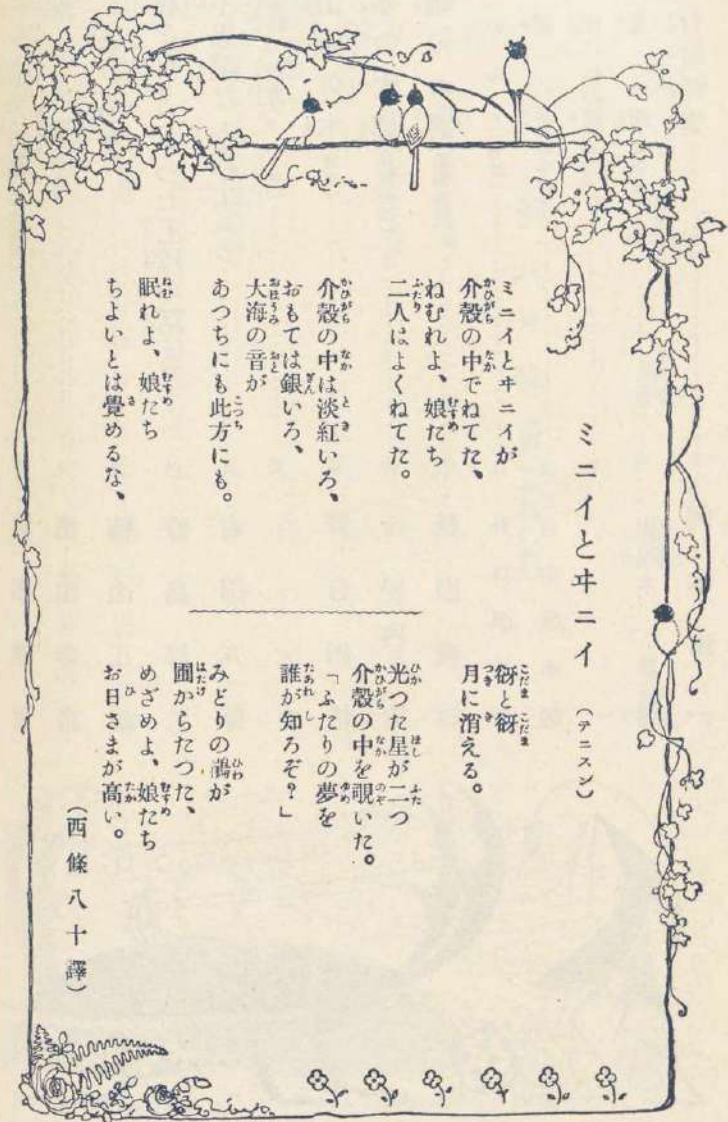 ミニイとヰニイ (テニスン)
ミニイとヰニイが
介殻の中でねてた、
ねむれよ、娘たち
二人はよくねてた。
介殻の中は淡紅いろ、
おもては銀いろ、
大海の音が
あつちにも此方にも。
眠れよ、娘たち
ちよいとは覺めるな、
谺と谺
月に消える。
光つた星が二つ
介殻の中を覗いた。
「ふたりの夢を
誰が知ろぞ?」
みどりの鶸が
圃からたつた、
めざめよ、娘たち
お日さまが高い。
(西條八十譯)